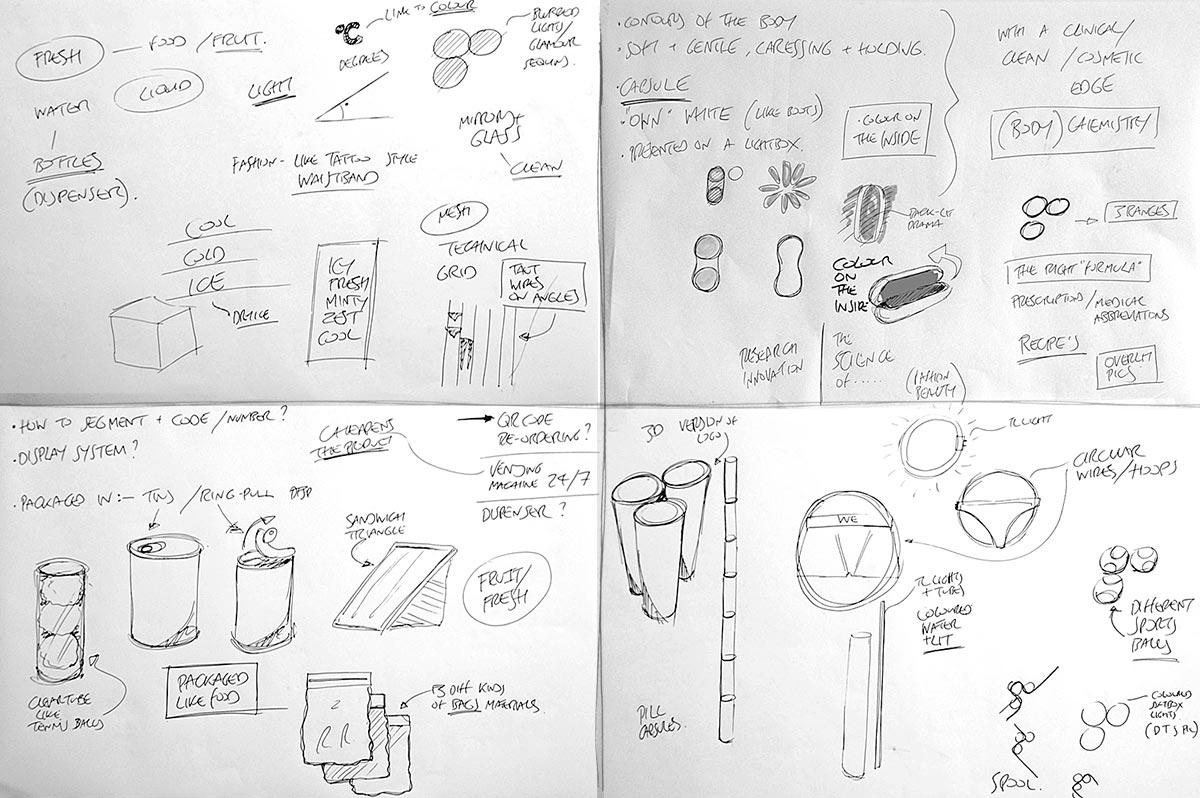 FRESH — FOOD / FRUIT.
LINK TO COLOUR
°C
DEGREES
BLURRED
LIGHTS/
GLAMOUR
SEQUINS.
WATER
LIQUID
LIGHT
BOTTLES
(DISPENSER).
MIRROR +
GLASS
CLEAN
FASHION - LIKE TATTOO STYLE
WAISTBAND
COOL
COLD
ICE
DRY ICE
ICY
FRESH
MINTY
ZEST
COOL
MESH
TECHNICAL
GRID
TAUT
WIRES
ON ANGLES
• CONTOURS OF THE BODY
• SOFT + GENTLE, CARESSING + HOLDING.
• CAPSULE
• "OWN" WHITE (LIKE BOOTS)
• PRESENTED ON A LIGHTBOX.
• COLOUR ON
THE INSIDE
WITH A CLINICAL/
CLEAN / COSMETIC
EDGE
(BODY) CHEMISTRY
BACK-LIT
DRAMA
3 RANGES
COLOUR
ON
THE
INSIDE
THE RIGHT "FORMULA"
PRESCRIPTION / MEDICAL
ABBREVIATIONS
RECIPE'S
OVERLAY
PICS
RESEARCH
INNOVATION
THE
SCIENCE
OF .....
(FASHION
BEAUTY)
• HOW TO SEGMENT + CODE / NUMBER?
• DISPLAY SYSTEM?
• PACKAGED IN:- TINS / RING-PULL
CHEAPENS
THE PRODUCT
QR CODE
RE-ORDERING?
VENDING
MACHINE 24/7
DISPENSER?
SANDWICH
TRIANGLE
FRUIT/
FRESH
CLEAR TUBE
LIKE
TENNIS BALLS
PACKAGED
LIKE FOOD
2
RR
3 DIFF KINDS
OF BAGS MATERIALS.
3D VERSION OF
LOGO
TL LIGHT
CIRCULAR
WIRES/HOOPS
WE
TL LIGHTS
+ TUBES
COLOURED
WATER
+ LIT
DIFFERENT
SPORTS
BALLS
PILL
CAPSULES.
SPOOL.
COLOURED
LIGHTS